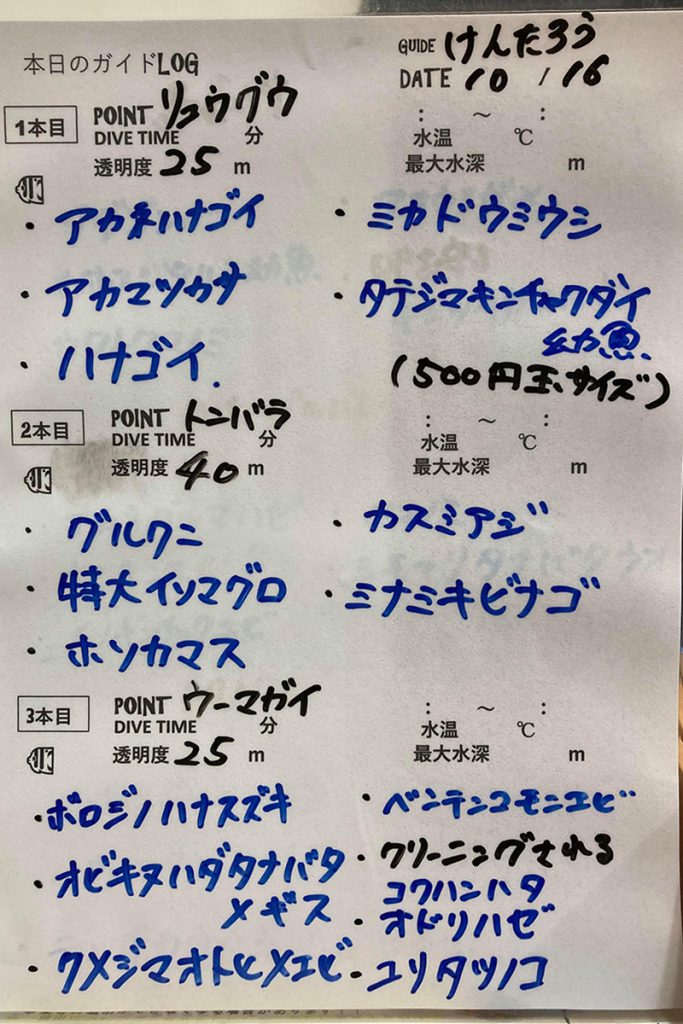 本日のガイドLOG
GUIDE けんたろう
DATE 10 / 16
1本目
POINT リュウグウ
DIVE TIME 分
: ～ :
水温 ℃
透明度 25 m
最大水深 m
・アカネハナゴイ
・アカマツカサ
・ハナゴイ.
・ミカドウミウシ
・タテジマキンチャクダイ
幼魚
(500円玉サイズ)
2本目
POINT トンバラ
DIVE TIME 分
: ～ :
水温 ℃
透明度 40 m
最大水深 m
・グルクン
・特大イソマグロ
・ホソカマス
・カスミアジ
・ミナミキビナゴ
3本目
POINT ウーマガイ
DIVE TIME 分
: ～ :
水温 ℃
透明度 25 m
最大水深 m
・ボロジノハナスズキ
・オビキヌハダタナバタ
メギス
・クメジマオトヒメエビ
・ベンテンコモンエビ
・クリーニングされる
コクハンハタ
・オドリハゼ
・ユリタツノコ